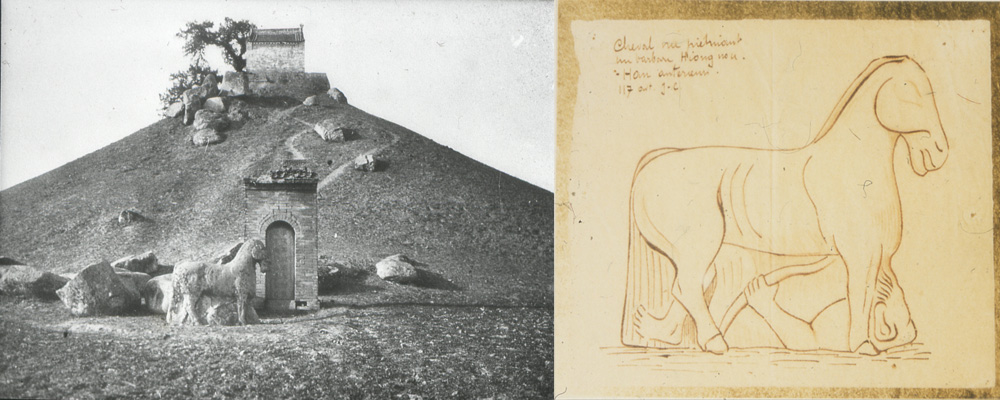 Cheval nu piétinant
un barbare Hiong nou.
Han antérieurs
117 av. J-C.